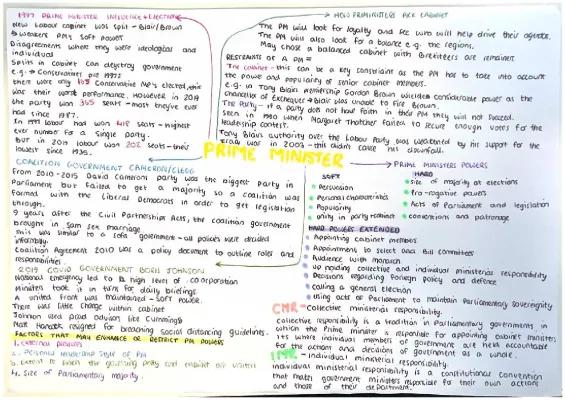 1997 PRIME MINISTER INFLUENCE + ELECTION
New Labour cabinet was split - Blair/Brown
→ weakens PM's soft power
Disagreements where they were ideological and
individual
Splits in cabinet can destroy government
e.g. → Conservatives pre 1997
there were only 165 Conservative MP's elected, this
was their worst performance. However, in 2019
the party won 365 seats - most they've
had since 1987.
In 1997 labour had won 418 seats - highest
ever number for a single party.
but in 2019 labour won 202 seats - their
lowest since 1935.
COALITION GOVERNMENT CAMERON/CLEGG
From 2010-2015 David Cameron party was the biggest party in
Parliament but failed to get a majority so a coalition was
formed with the Liberal Democrats in order to get legislation
through.
9 years after the Civil Partnerships Acts, the coalition government
brought in Sam sex marriage
this was similar to a sofa government - all policies were decided
informally.
Coalition Agreement 2010 was a policy document to outline roles and
responsibilities.
2019 COVID GOVERNMENT BORIS JOHNSON
National emergency led to a high level of cooporation
Ministers took it in turn for daily briefings
A united front was maintained - soft power.
There was little change within cabinet
Johnson used paid advisors like Cummings
Matt Hancock resigned for breaching social distancing guidelines.
FACTORS THAT MAY ENHANCE OR RESTRICT PM POWERS
1. External pressures
2. Personal leadership style of PM
3. Extent to which the governing party and cabinet are united
4. Size of Parliamentary majority.
PRIME MINISTER
HOW PRIMINISTERS PICK CABINET
The PM will look for loyalty and see who will help drive their agendas.
The PM will also look for a balance e.g. the regions.
May chose a balanced cabinet with Brexiteers and remainers
RESTRAINTS OF A PM
The cabinet - this can be a key constraint as the PM has to take into account
the power and popularity of senior cabinet members.
e.g. in Tony Blair premiership Gordon Brown wielded considerable power as the
Chancellor of Exchequer → Blair was unable to fire Brown.
The Party - if a party does not have faith in their PM they will not succeed.
seen in 1990 when Margaret Thatcher failed to secure enough votes for the
leadership contest.
Tony Blair's authority over the Labour Party was weakened by his support for the
Iraq war in 2003 - this didn't cause his downfall.
PRIME MINISTERS POWERS
SOFT
Persuasion
Personal characteristics
Popularity
unity in party + cabinet
HARD
Size of majority at elections
Prerogative powers
Acts of Parliament and legislation
conventions and patronage
HARD POWERS EXTENDED
Appointing cabinet members
Appointments to select and Bill committees
Audience with monarch
Upholding collective and individual ministerial responsibility
Decisions regarding foreign policy and defence
calling a general election
using acts of Parliament to maintain Parliamentary sovereignty
CMR - Collective ministerial responsibility.
collective responsibility is a tradition in Parliamentary governments, in
which the Prime minister is responsible for appointing cabinet ministers
Its where individual members of government are held accountable
for the actions and decisions of government as a whole.
IMR - individual ministerial responsibility.
individual ministerial responsibility is a constitutional convention
that makes government ministers responsible for their own actions
and those of their department.